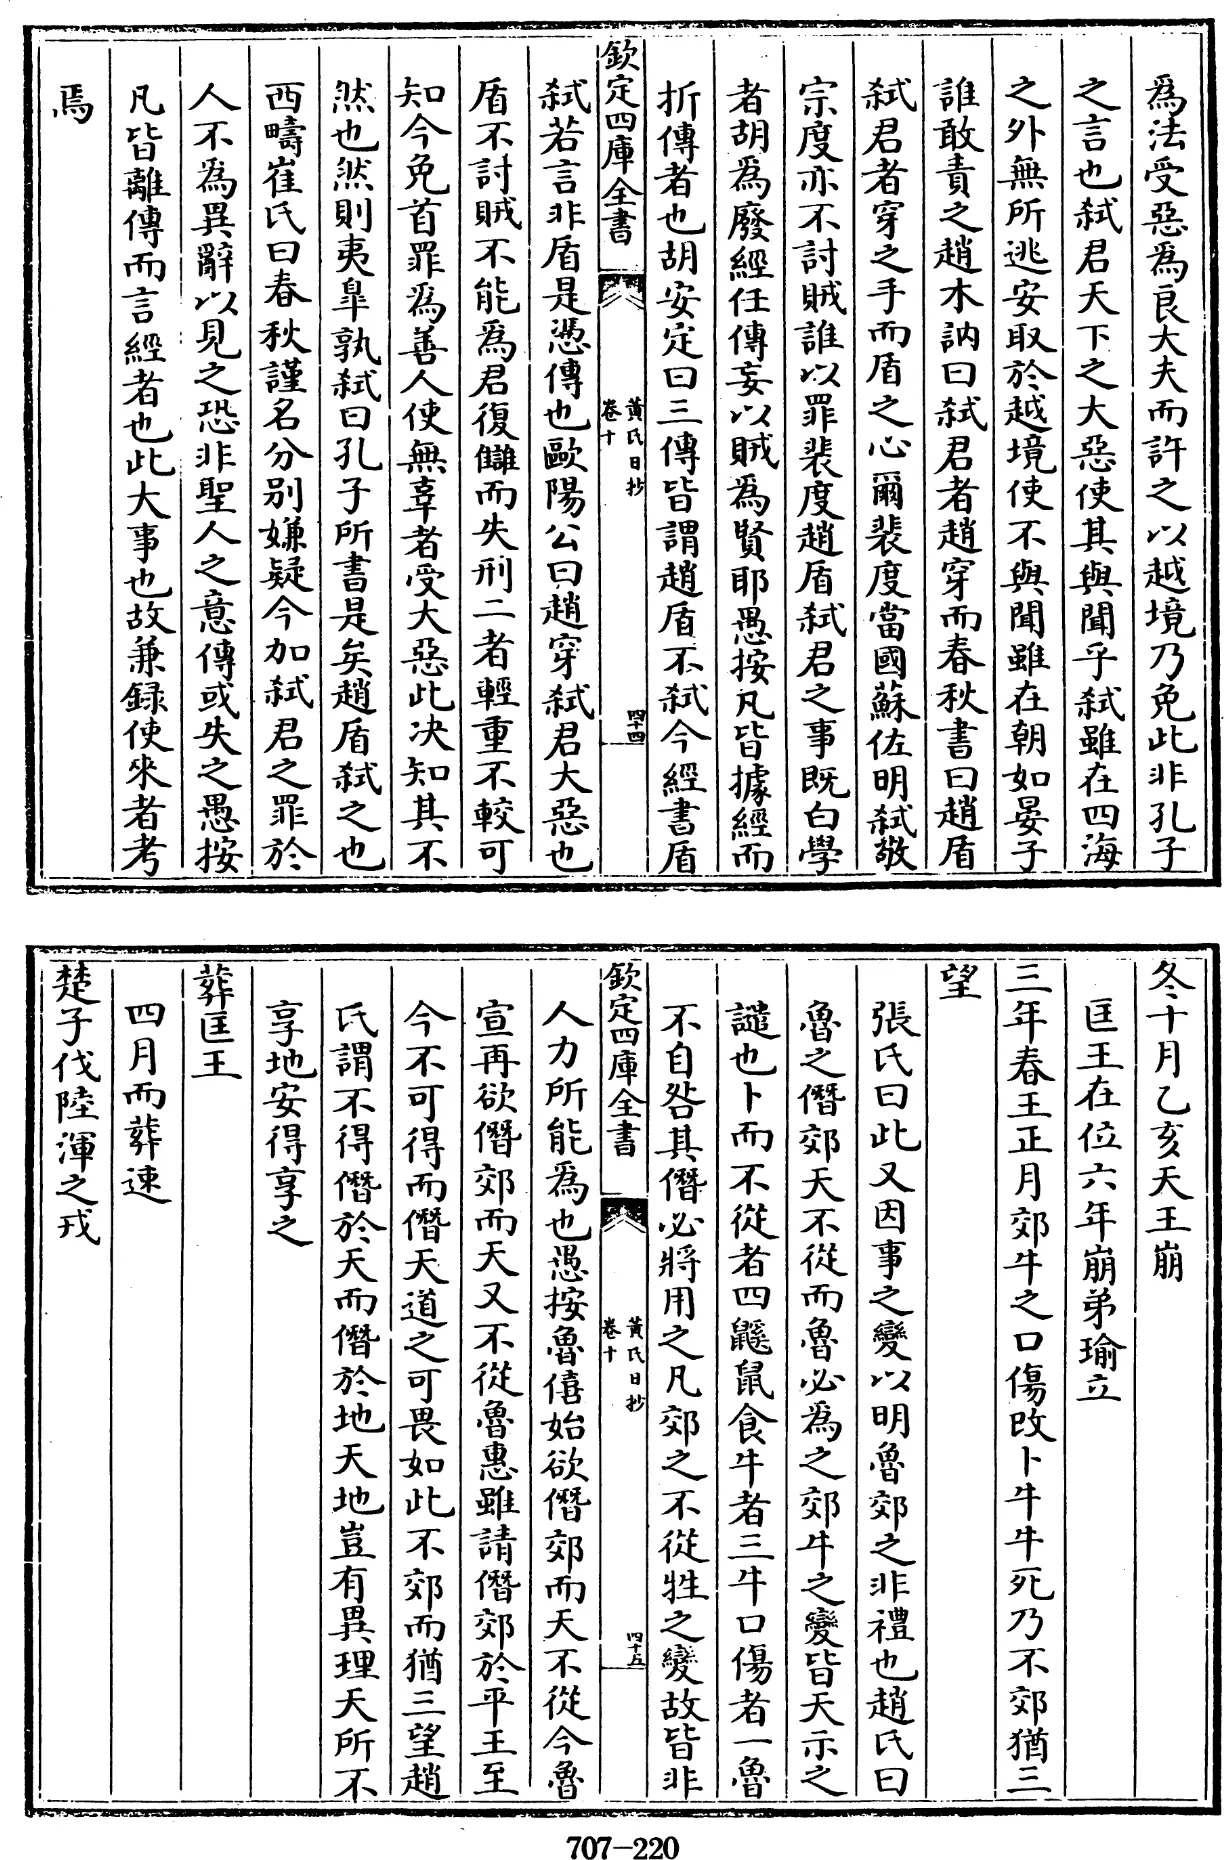 爲法受惡爲良大夫而許之以越境乃免此非孔子
之言也弑君天下之大惡使其與聞乎弑雖在四海
之外無所逃安取於越境使不與聞雖在朝如晏子
誰敢責之趙木訥曰弑君者趙穿而春秋書曰趙盾
弑君者穿之手而盾之心爾裴度當國蘇佐明弑敬
宗度亦不討賊誰以罪裴度趙盾弑君之事既白學
者胡爲廢經任傳妄以賊爲賢耶愚按凡皆據經而
折傳者也胡安定曰三傳皆謂趙盾不弑今經書盾
欽定四庫全書
黃氏日抄
卷十
四十四
弑若言非盾是憑傳也歐陽公曰趙穿弑君大惡也
盾不討賊不能爲君復讎而失刑二者輕重不較可
知今免首罪爲善人使無辜者受大惡此决知其不
然也然則夷臯孰弑曰孔子所書是矣趙盾弑之也
西疇崔氏曰春秋謹名分别嫌疑今加弑君之罪於
人不爲異辭以見之恐非聖人之意傳或失之愚按
凡皆離傳而言經者也此大事也故兼録使來者考
焉
冬十月乙亥天王崩
匡王在位六年崩弟瑜立
三年春王正月郊牛之口傷改卜牛牛死乃不郊猶三
望
張氏曰此又因事之變以明魯郊之非禮也趙氏曰
魯之僭郊天不從而魯必爲之郊牛之變皆天示之
譴也卜而不從者四鼷鼠食牛者三牛口傷者一魯
不自咎其僭必將用之凡郊之不從牲之變故皆非
欽定四庫全書
黃氏日抄
卷十
四十五
人力所能爲也愚按魯僖始欲僭郊而天不從今魯
宣再欲僭郊而天又不從魯惠雖請僭郊於平王至
今不可得而僭天道之可畏如此不郊而猶三望趙
氏謂不得僭於天而僭於地天地豈有異理天所不
享地安得享之
葬匡王
四月而葬速
楚子伐陸渾之戎
707-220